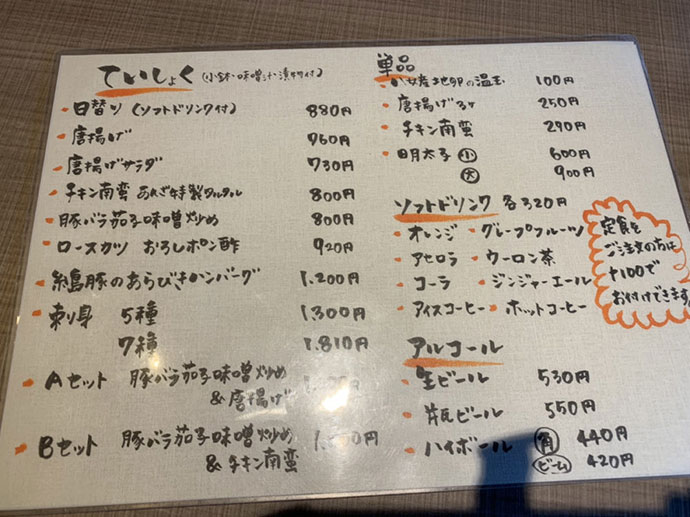 ていしょく (小鉢・味噌汁・漬物付)
日替り (ソフトドリンク付) 880円
唐揚げ 760円
唐揚げサラダ 730円
チキン南蛮 あれざ特製タルタル 800円
豚バラ茄子味噌炒め 800円
ロースカツ おろしポン酢 920円
糸島豚のあらびきハンバーグ 1,200円
刺り身 5種 1,300円
7種 1,810円
Aセット 豚バラ茄子味噌炒め
& 唐揚げ
Bセット 豚バラ茄子味噌炒め
& チキン南蛮
単品
八女産地卵の温玉 100円
唐揚げ3ヶ 250円
チキン南蛮 290円
明太子 小 600円
大 900円
ソフトドリンク 各320円
・オレンジ ・グレープフルーツ
・アセロラ ・ウーロン茶
・コーラ ・ジンジャーエール
・アイスコーヒー ・ホットコーヒー
定食を
ご注文の方は
+100で
お付けできます。
アルコール
生ビール 530円
瓶ビール 550円
ハイボール 角 440円
ビーム 420円